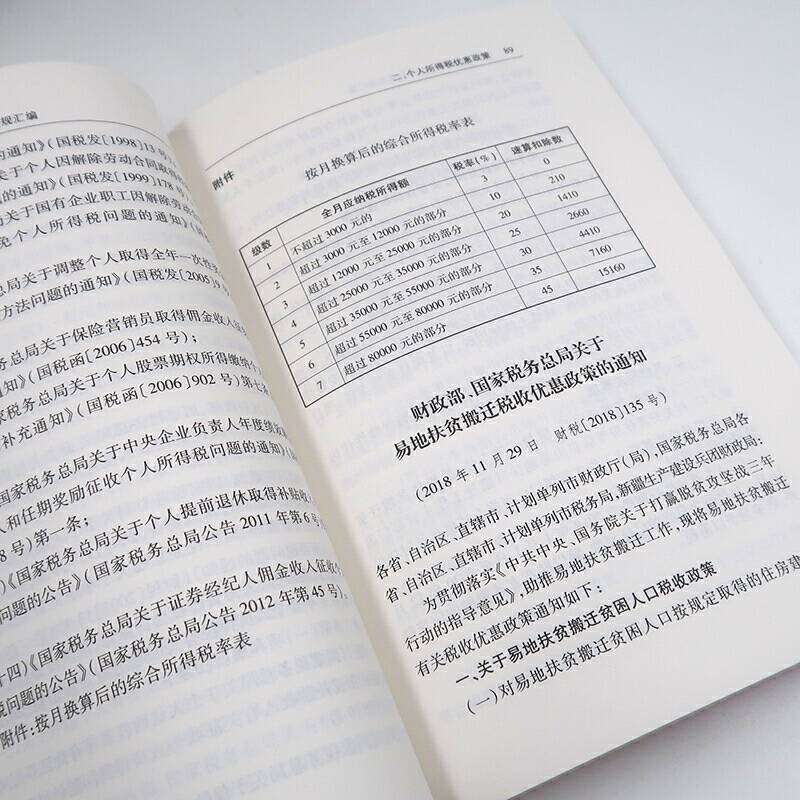 规汇编
的通知》(国税发[1998]13号
关于个人因解除劳动合同取得
的通知》(国税发[1999]178号
局关于国有企业职工因解除劳动合
免个人所得税问题的通知》(国
总局关于调整个人取得全年一次性奖
方法问题的通知》(国税发[2005]9
总局关于保险营销员取得佣金收入
知》(国税函[2006]454号);
务总局关于个人股票期权所得缴纳个
补充通知》(国税函[2006]902号)第七
国家税务总局关于中央企业负责人年度绩效
人和任期奖励征收个人所得税问题的通知》(
8号)第一条;
国家税务总局关于个人提前退休取得补贴收
问题的公告》(国家税务总局公告2011年第6号
十四)《国家税务总局关于证券经纪人佣金收入征收个
税问题的公告》(国家税务总局公告2012年第45号)。
附件:按月换算后的综合所得税率表
二、个人所得税优惠政策 89
附件
按月换算后的综合所得税率表
级数 全月应纳税所得额 税率(%) 速算扣除数
1 不超过3000元的 3 0
2 超过3000元至12000元的部分 10 210
3 超过12000元至25000元的部分 20 1410
4 超过25000元至35000元的部分 25 2660
5 超过35000元至55000元的部分 30 4410
6 超过55000元至80000元的部分 35 7160
7 超过80000元的部分 45 15160
财政部、国家税务总局关于
易地扶贫搬迁税收优惠政策的通知
(2018年11月29日 财税[2018]135号)
各省、自治区、直辖市、计划单列市财政厅(局),国家税务总局各
省、自治区、直辖市、计划单列市税务局,新疆生产建设兵团财政局:
为贯彻落实《中共中央、国务院关于打赢脱贫攻坚战三年
行动的指导意见》,助推易地扶贫搬迁工作,现将易地扶贫搬迁
有关税收优惠政策通知如下:
一、关于易地扶贫搬迁贫困人口税收政策
(一)对易地扶贫搬迁贫困人口按规定取得的住房建